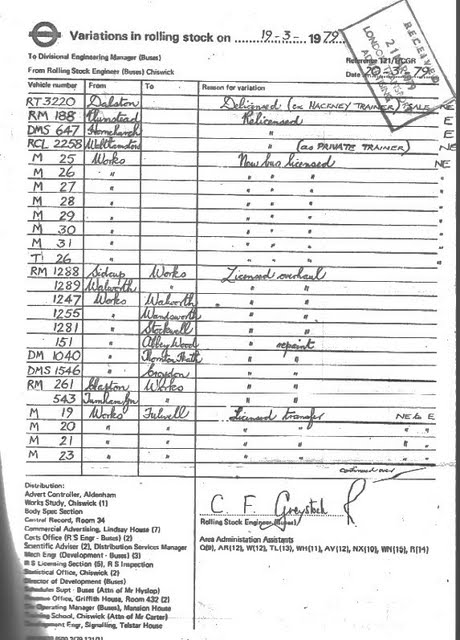 Variations in rolling stock on 19-3- 1979
RECEIVED
21 MAR 1979
LONDON TRANSPORT
To Divisional Engineering Manager (Buses)
Reference 121/1/CGR
From Rolling Stock Engineer (Buses) Chiswick
Date 20-3-79
Vehicle number From To Reason for variation
RT 3220 Dalston Delicensed (ex HACKNEY TRAINER) SALE NE
RM 188 Plumstead Relicensed E
DMS 647 Hornchurch " E
RCL 2258 Walthamstow " (as PRIVATE TRAINER) NE
M 25 Works New bus licensed NE
M 26 " " " " "
M 27 " " " " "
M 28 " " " " "
M 29 " " " " "
M 30 " " " " "
M 31 " " " " "
T 26 " " " " "
RM 1288 Sidcup Works Licensed overhaul
1289 Walworth " " "
1247 Works Walworth " "
1255 " Wandsworth " "
1281 " Stockwell " "
151 " Abbey Wood " repaint
DM 1040 " Thornton Heath " "
DMS 1546 " Croydon " "
RM 261 Clapton Works " "
543 Turnham Gn " " "
M 19 Works Fulwell Licensed transfer NE & E
M 20 " " " " " "
M 21 " " " " " "
M 23 " " " " " "
continued over
Distribution:
Advert Controller, Aldenham
Works Study, Chiswick (1)
Body Spec Section
Central Record, Room 34
Commercial Advertising, Lindsay House (7)
Costs Office (R S Engr - Buses) (2)
Scientific Adviser (2), Distribution Services Manager
Mech Engr (Development - Buses) (3)
R S Licensing Section (5), R S Inspection
Statistical Office, Chiswick (2)
Director of Development (Buses)
Schedules Supt - Buses (Attn of Mr Hyslop)
Revenue Office, Griffith House, Room 432 (2)
Operating Manager (Buses), Mansion House
School, Chiswick (Attn of Mr Carter)
Development Engr, Signalling, Telstar House
C. F. Greystock
Rolling Stock Engineer (Buses)
Area Administration Assistants
Q(9), AR(12), W(12), TL(13), WH(11), AV(12), NX(10), WN(15), R(14)